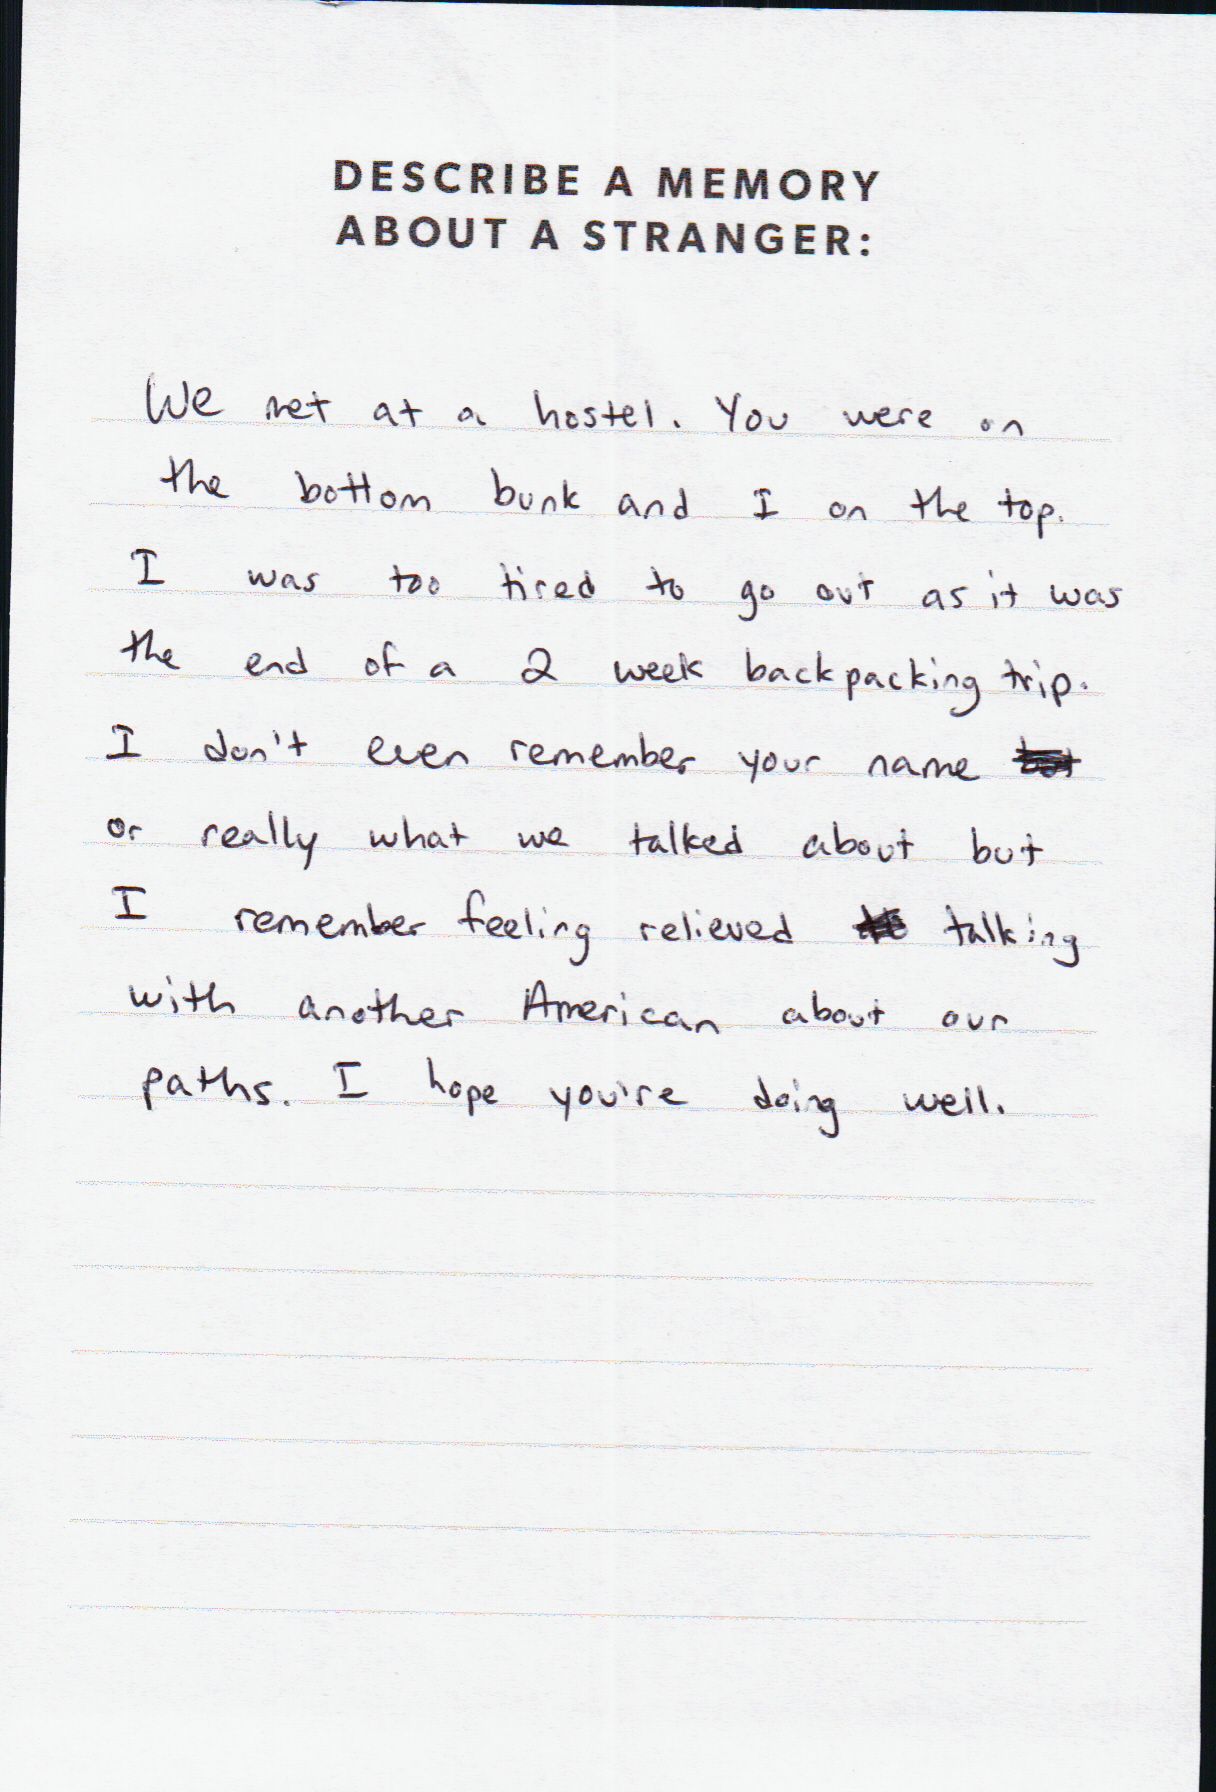 DESCRIBE A MEMORY
ABOUT A STRANGER:
We met at a hostel. You were on
the bottom bunk and I on the top.
I was too tired to go out as it was
the end of a 2 week backpacking trip.
I don't even remember your name
or really what we talked about but
I remember feeling relieved talking
with another American about our
paths. I hope you're doing well.